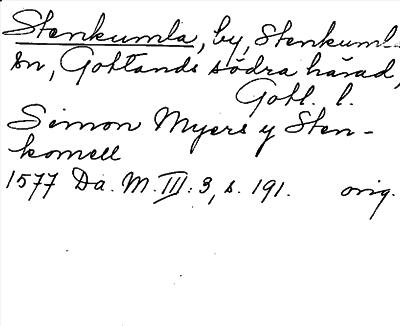 Stenkumla, by, Stenkumla
sn, Gotlands södra härad,
Gotl. l.
Simon Myers y Sten-
komell
1577 Da. M. III: 3, s. 191. orig.